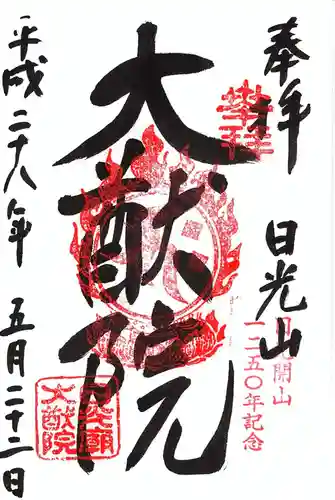 奉拝
日光山
日光開山
一二五〇年記念
大猷院
平成二十八年
五月二十二日
大猷院